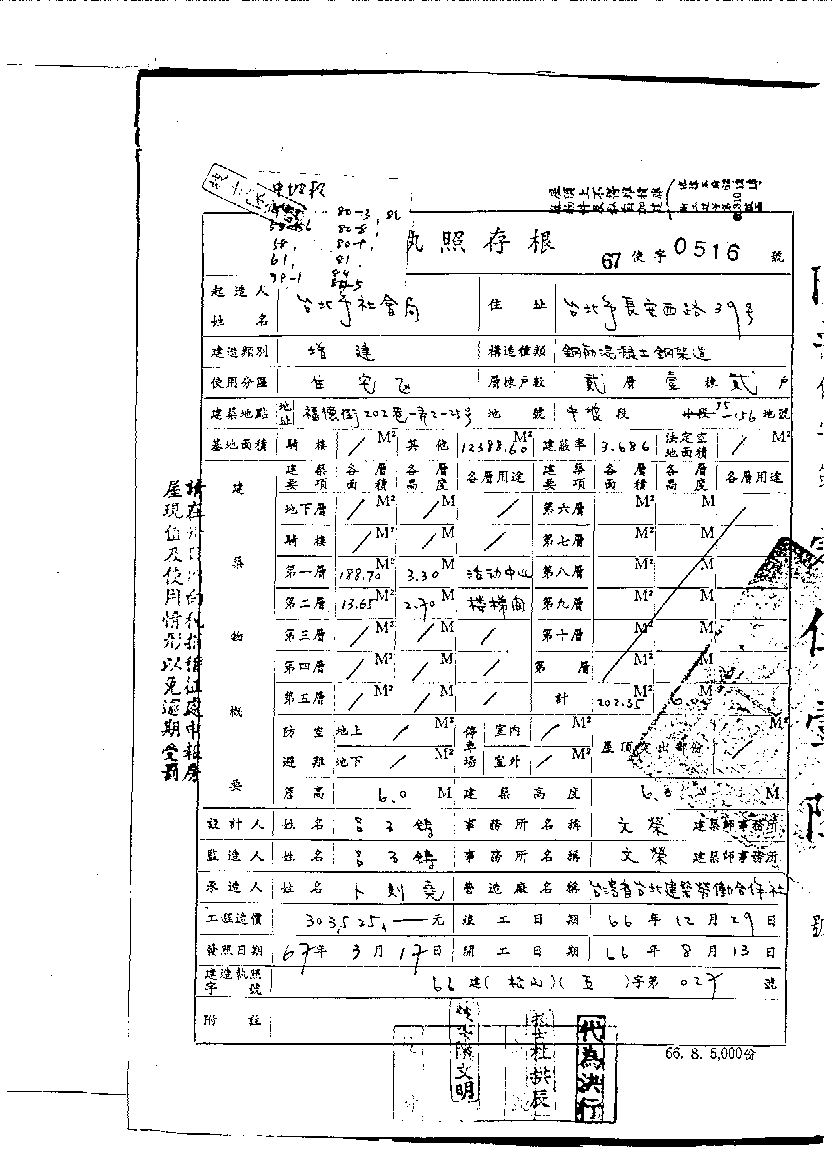 中坡段
80-3, 82
80-8,
58, 80-9,
61, 81,
84
執照存根
67 使字 0516 號
起造人姓名 台北市社會局 住址 台北市長安西路39號
建造類別 增建 構造種類 鋼筋混凝土鋼架造
使用分區 住宅區 層棟戶數 貳層壹棟貳戶
建築地點 地址 福德街202巷 地號 中坡段 156 地號
基地面積 騎樓 / M² 其他 12388.60 M² 建蔽率 3.686 法定空地面積 / M²
建築要項 各層面積 各層高度 各層用途 建築要項 各層面積 各層高度 各層用途
地下層 / M² / M / 第六層 M² M
騎樓 / M² / M / 第七層 M² M
第一層 188.70 M² 3.30 M 活动中心 第八層 M² M
第二層 13.65 M² 2.70 M 楼梯间 第九層 M² M
第三層 / M² / M / 第十層 M² M
第四層 / M² / M / 第 層 M² M
第五層 / M² / M / 計 202.35 M² M
建築物概要
防空避難 地上 / M² 停車場 室內 / M² 屋頂突出部份 / M²
地下 / M² 室外 / M²
簷高 6.0 M 建築高度 M
設計人 姓名 事務所名稱 文榮 建築師事務所
監造人 姓名 事務所名稱 文榮 建築師事務所
承造人 姓名 卜則堯 營造廠名稱 台灣省台北建築勞働合作社
工程造價 303,525.— 元 竣工日期 66年12月29日
發照日期 67年3月17日 開工日期 66年8月13日
建造執照字號 66建(松山)(五)字第027號
附註
代為決行
66. 8. 5,000份
屋現值及使用情形以免逾期受罰